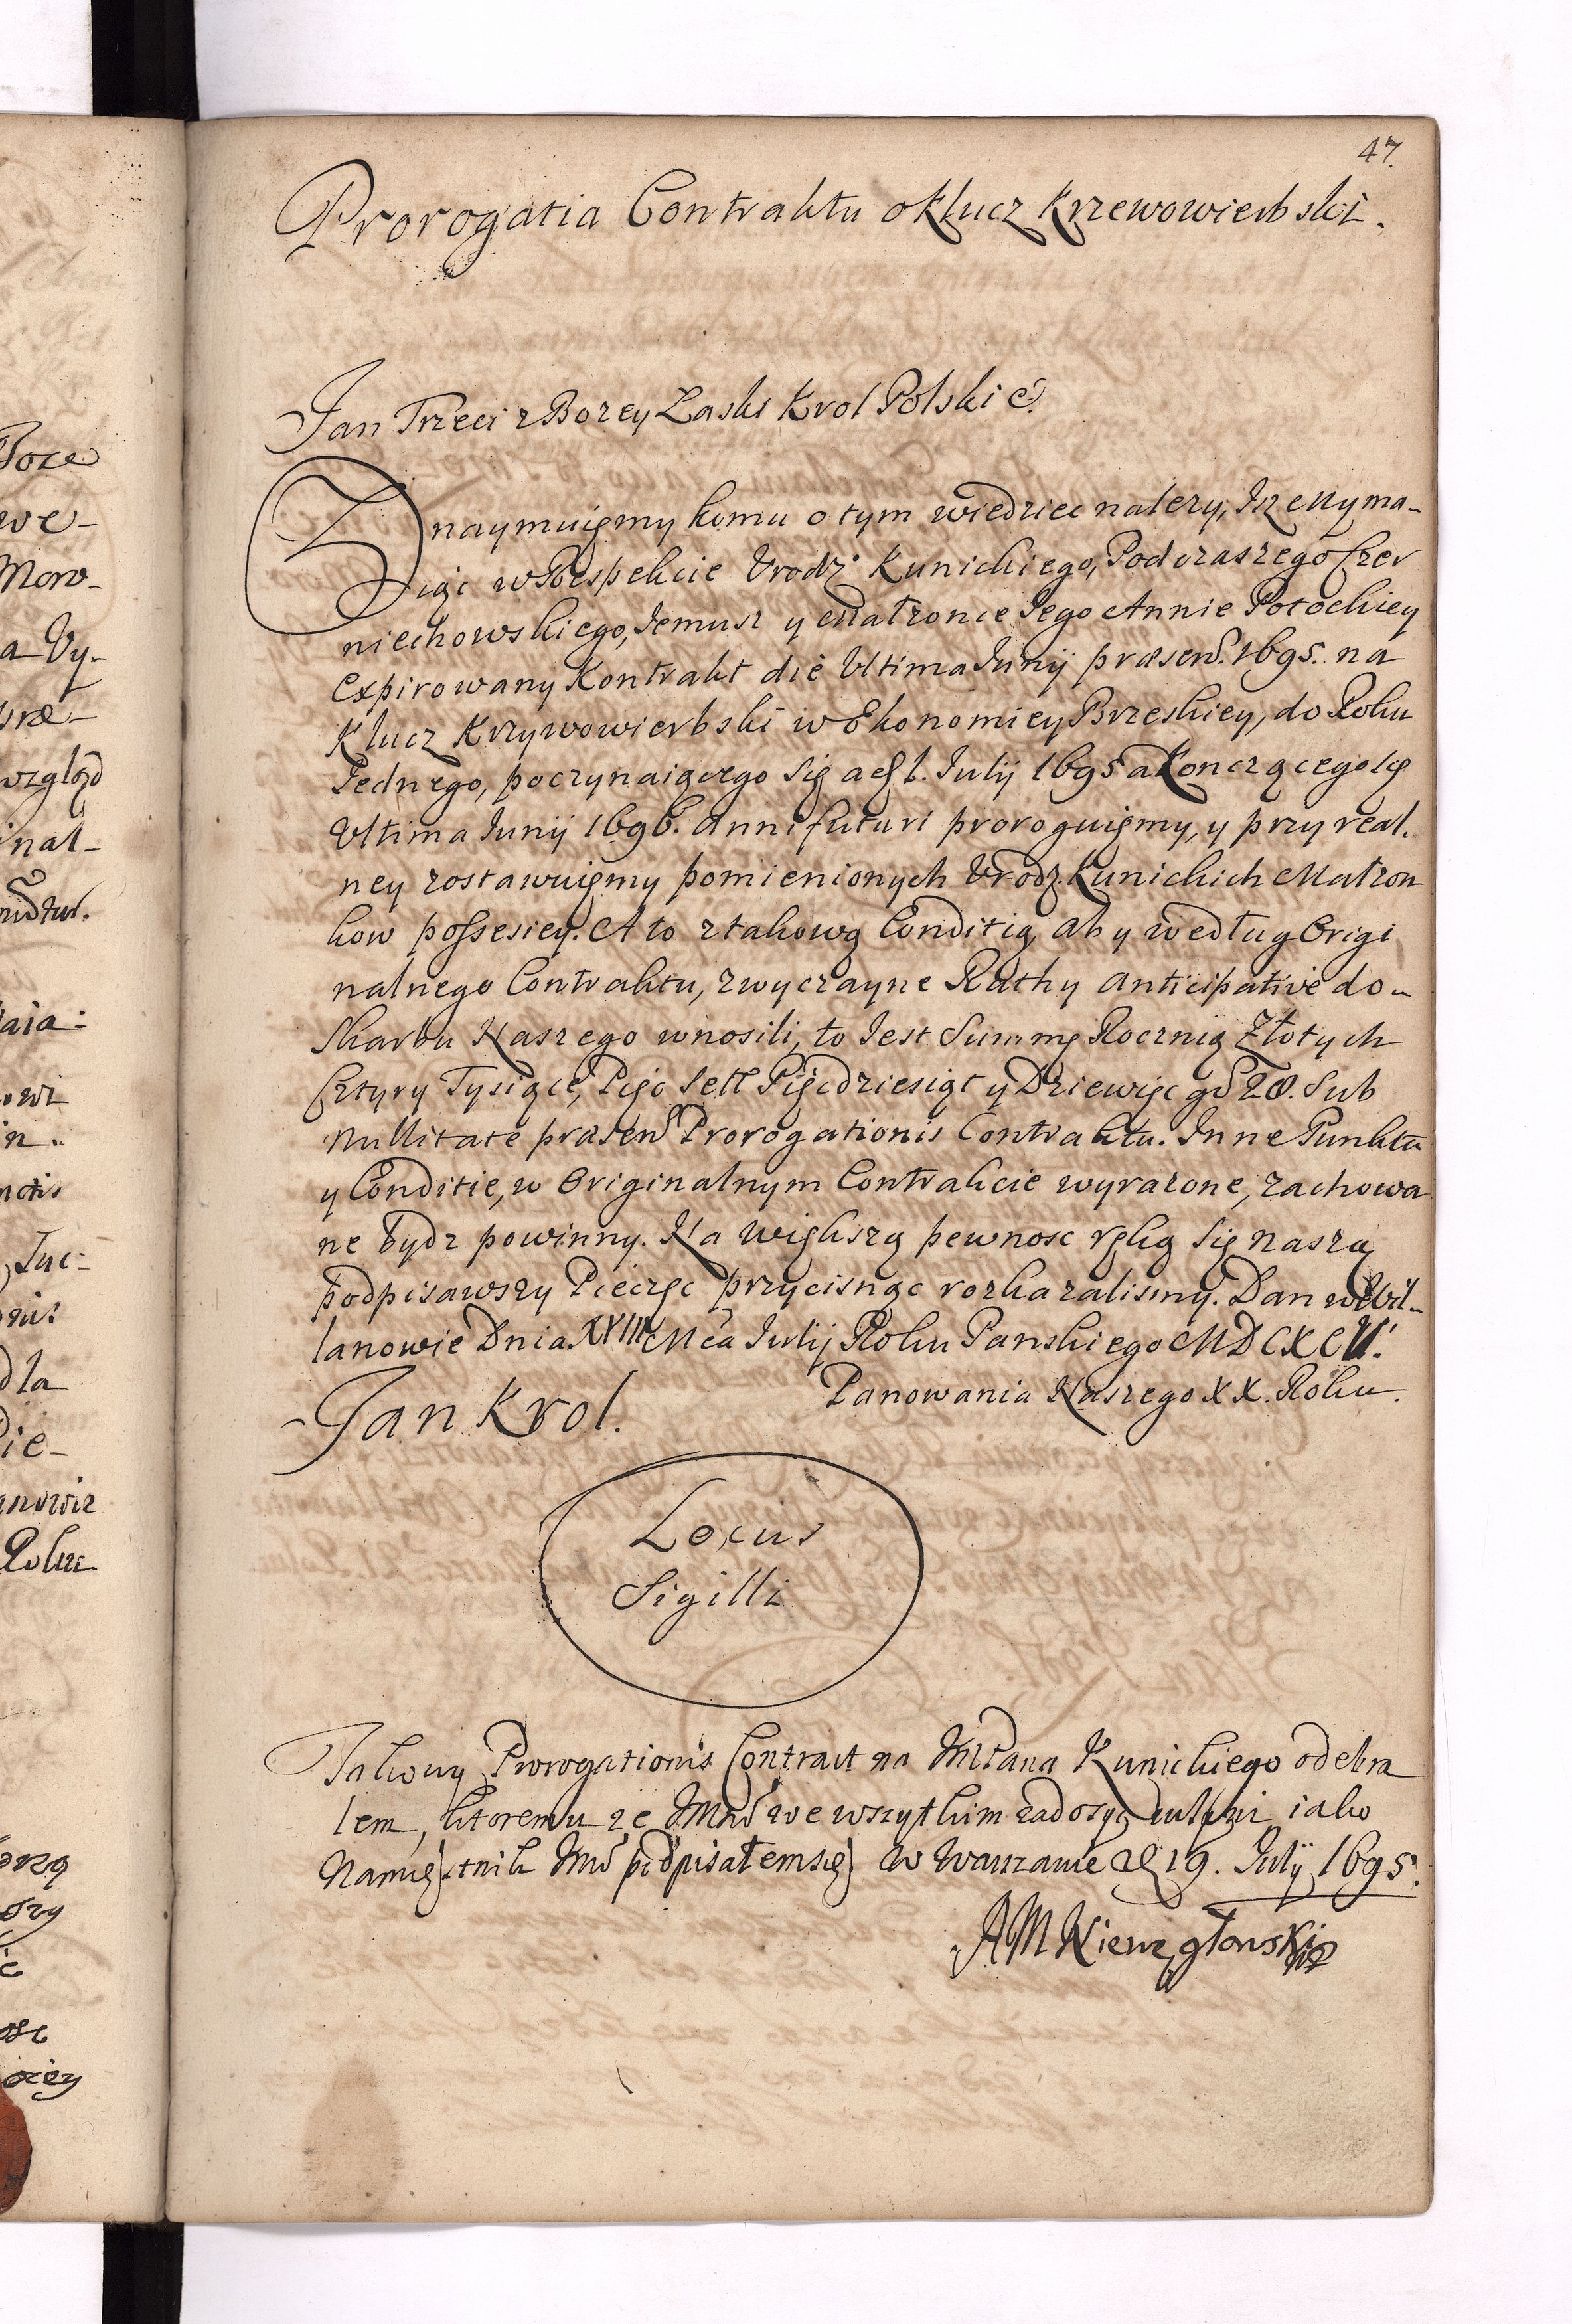 47.
Prorogatia Contraktu o Klucz Krzewowierbski.
Jan Trzeci z Bozey Laski Krol Polski &c.
Znaymuięmy komu o tym wiedziec nalezy, Iz e My ma-
iąc w Respekcie Urodz. Kunickiego, Podczaszego Czer
niechowskiego, Iemusz y Małzonce Iego Annie Potockiey
Expirowany Kontrakt die Ultima Iunij præsen. 1695. na
Klucz Krzywowierbski w Ekonomiey Brzeskiey, do Roku
Iednego, poczynaiącego się a d. 1. Iulij 1695 a Konczącego się
Ultima Iunij 1696. anni futuri proroguięmy, y przy real.
ney zostawuięmy pomienionych Urodz. Kunickich Małzon
kow possesiey. A to z takową Conditią, aby według Origi
nalnego Contraktu, zwyczayne Rathy anticipative do-
Skarbu Naszego wnosili, to Iest Summę Rocznią Złotych
Cztyry Tysiące, Pięc Sett Pięcdziesiąt y Dziewięc gr 28. Sub
Nullitate præsen Prorogationis Contraktu. Inne Punkta
y Conditie, w Originalnym Contrakcie wyrazone, zachowa
ne bydz powinny. Na większą pewnosc ręką się naszą
podpisawszy Pieczęc przycisnąc rozkazalismy. Dan w Wil-
lanowie Dnia. XVIII Mca Iulij Roku Panskiego MDCXCV.
Panowania Naszego XX. Roku.
Jan Krol.
Locus
Sigilli
Takowy Prorogationis Contract na ImPana Kunickiego odebra
lem, ktoremu ze we wszytkim zadosyc iako
Namięstnik podpisałem się w Warszawie d 19. Iulij 1695.
AM Niewęgłowski